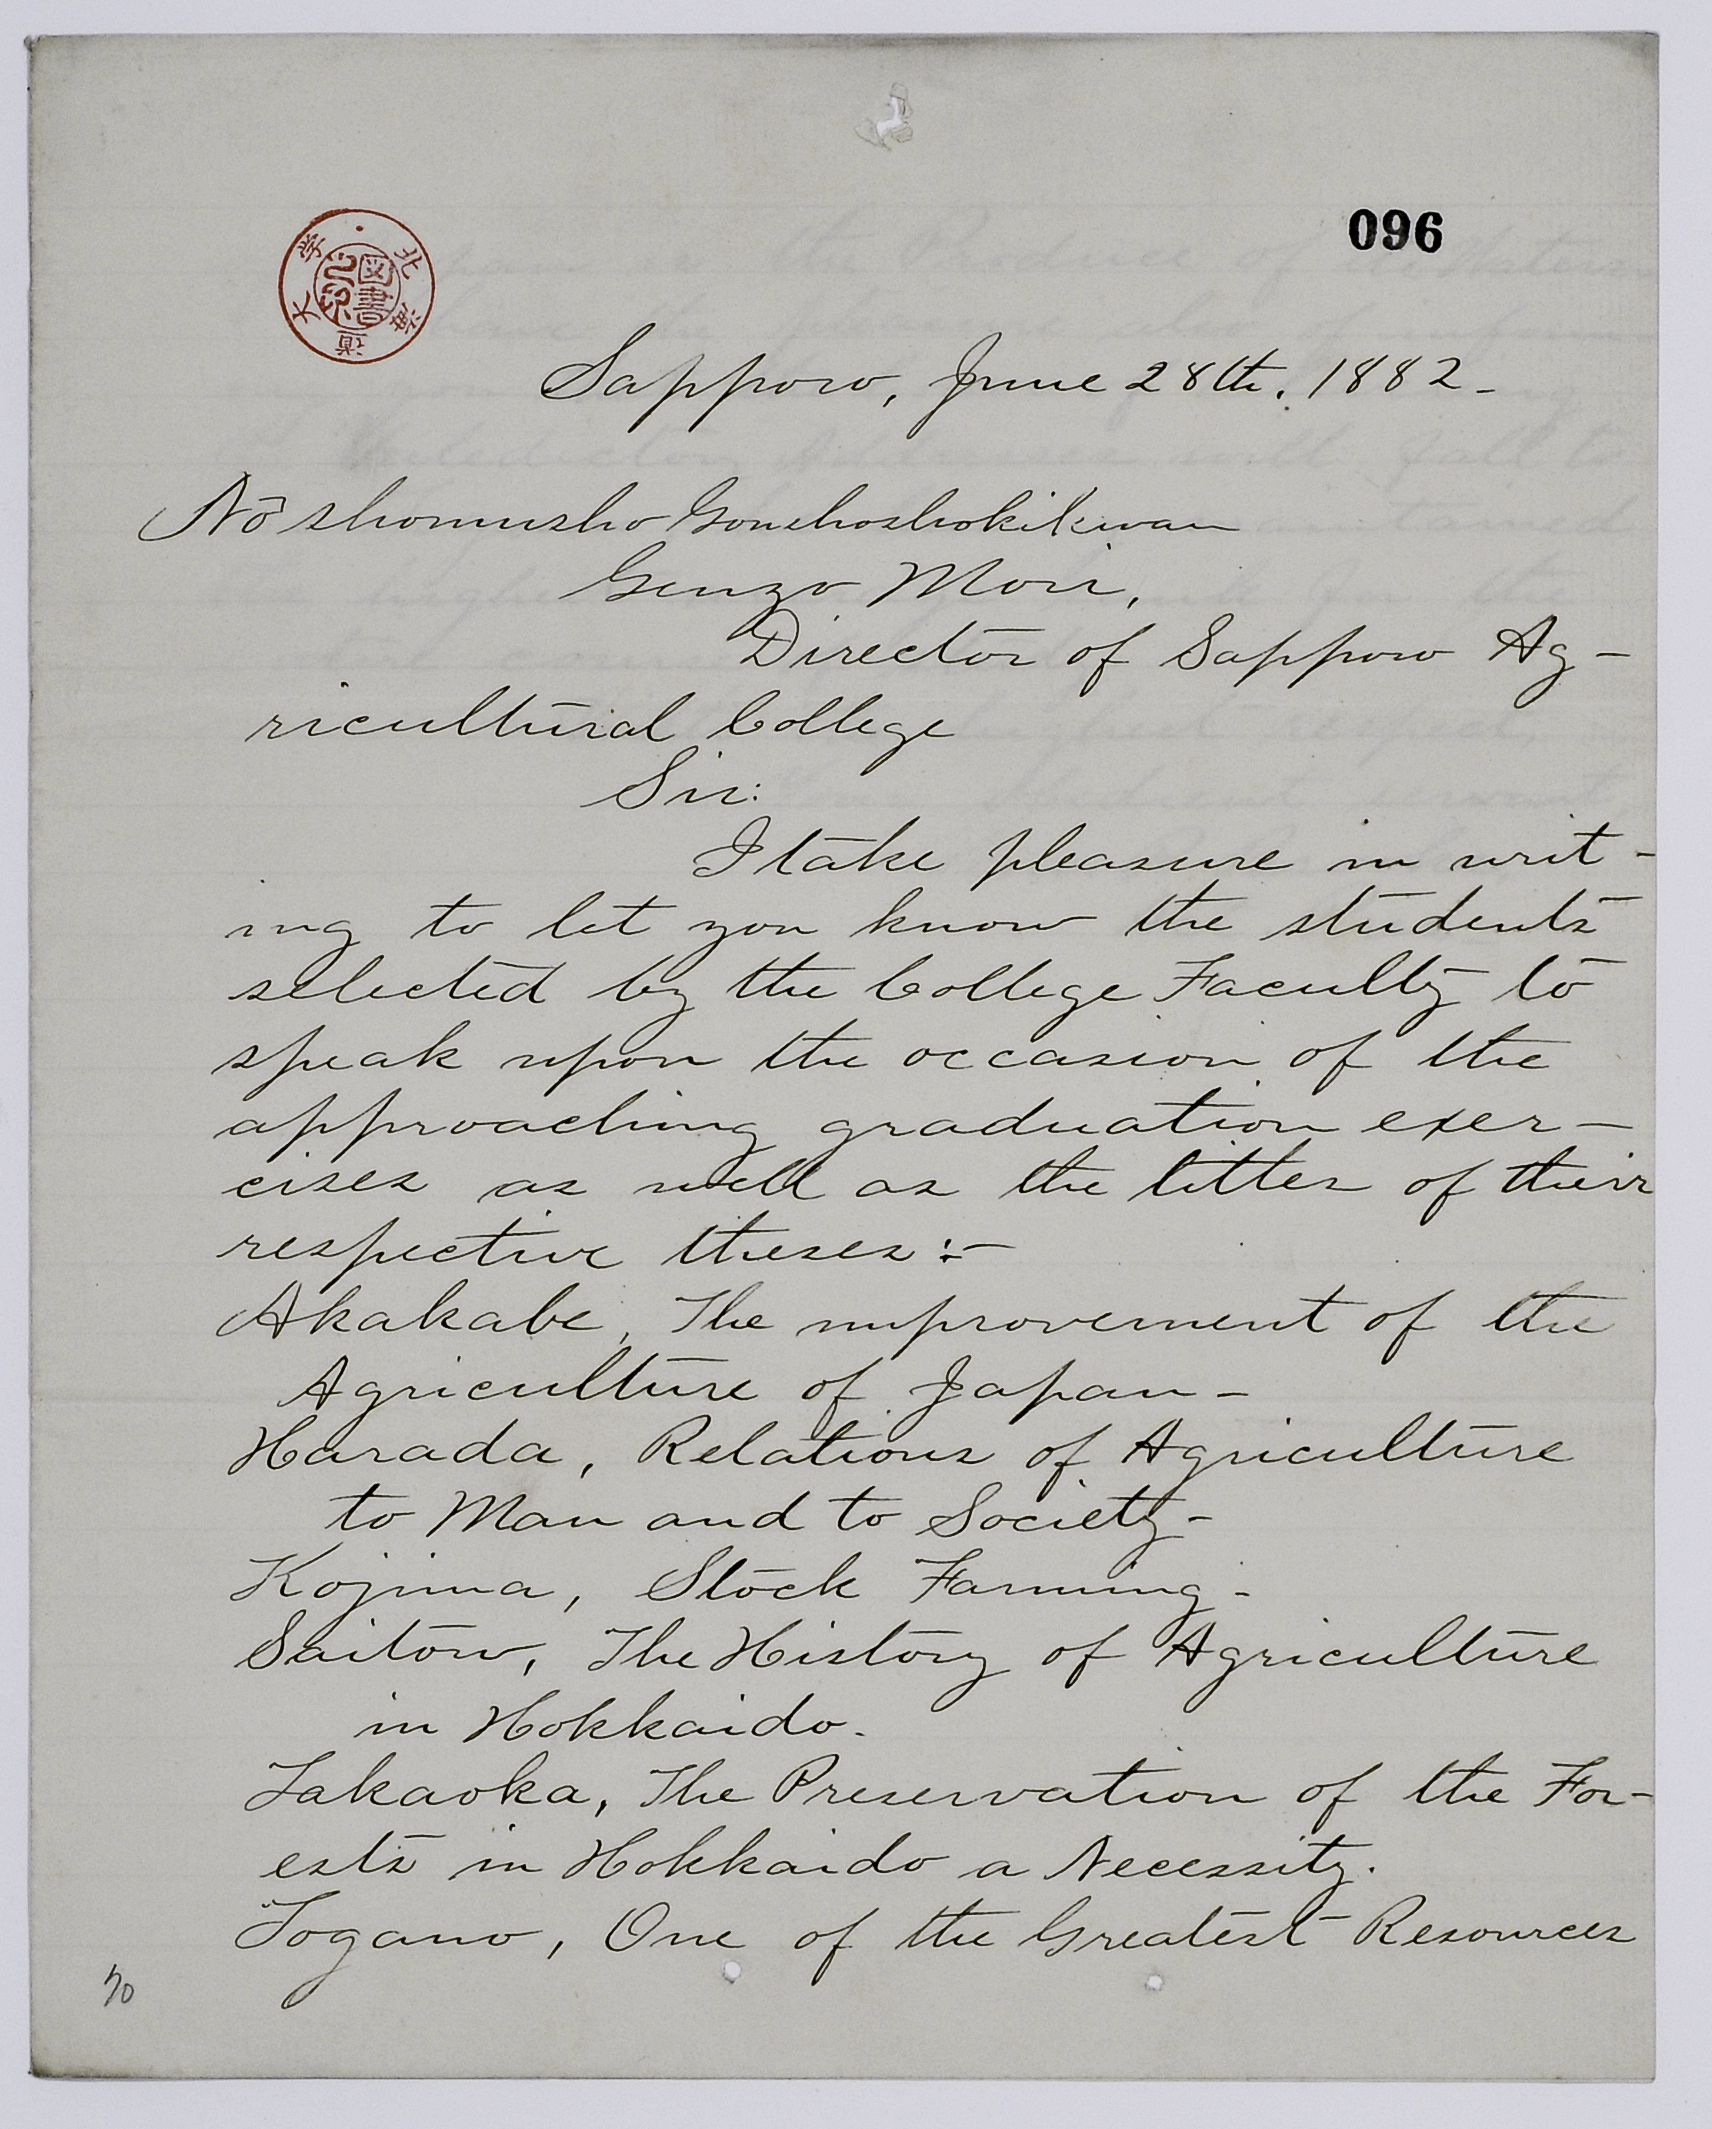 096
北海道大学
図書
Sapporo, June 28th. 1882-
Nōshomusho Gonshoshokikwan
Genzo Mori,
Director of Sapporo Ag-
ricultural College
Sir:
I take pleasure in writ-
ing to let you know the students
selected by the College Faculty to
speak upon the occasion of the
approaching graduation exer-
cises as well as the titles of their
respective theses:-
Akakabe, The improvement of the
Agriculture of Japan-
Harada, Relations of Agriculture
to Man and to Society-
Kojima, Stock Farming-
Saitow, The History of Agriculture
in Hokkaido.
Takaoka, The Preservation of the For-
ests in Hokkaido a Necessity.
Togano, One of the Greatest Resources
70